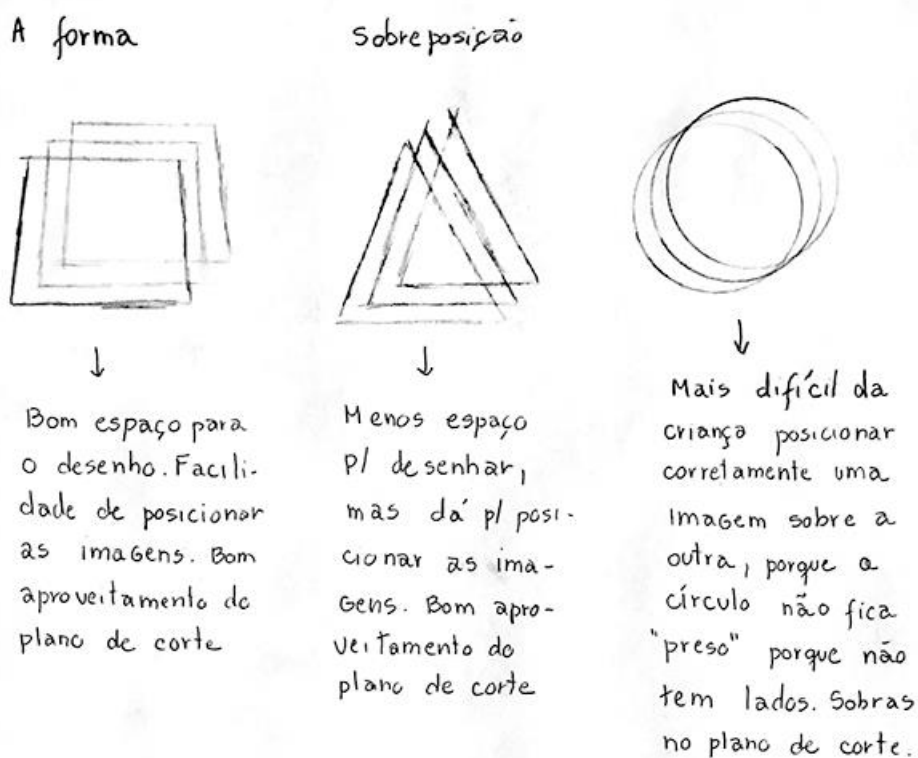 A forma
Sobreposição
Bom espaço para
o desenho. Facili-
dade de posicionar
as imagens. Bom
aproveitamento do
plano de corte
Menos espaço
p/ desenhar,
mas dá p/ posi-
cionar as ima-
gens. Bom apro-
veitamento do
plano de corte
Mais difícil da
criança posicionar
corretamente uma
imagem sobre a
outra, porque o
círculo não fica
"preso" porque não
tem lados. Sobras
no plano de corte.